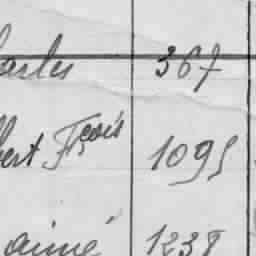 arles 367
bert Fçois 1095
aimé 1238